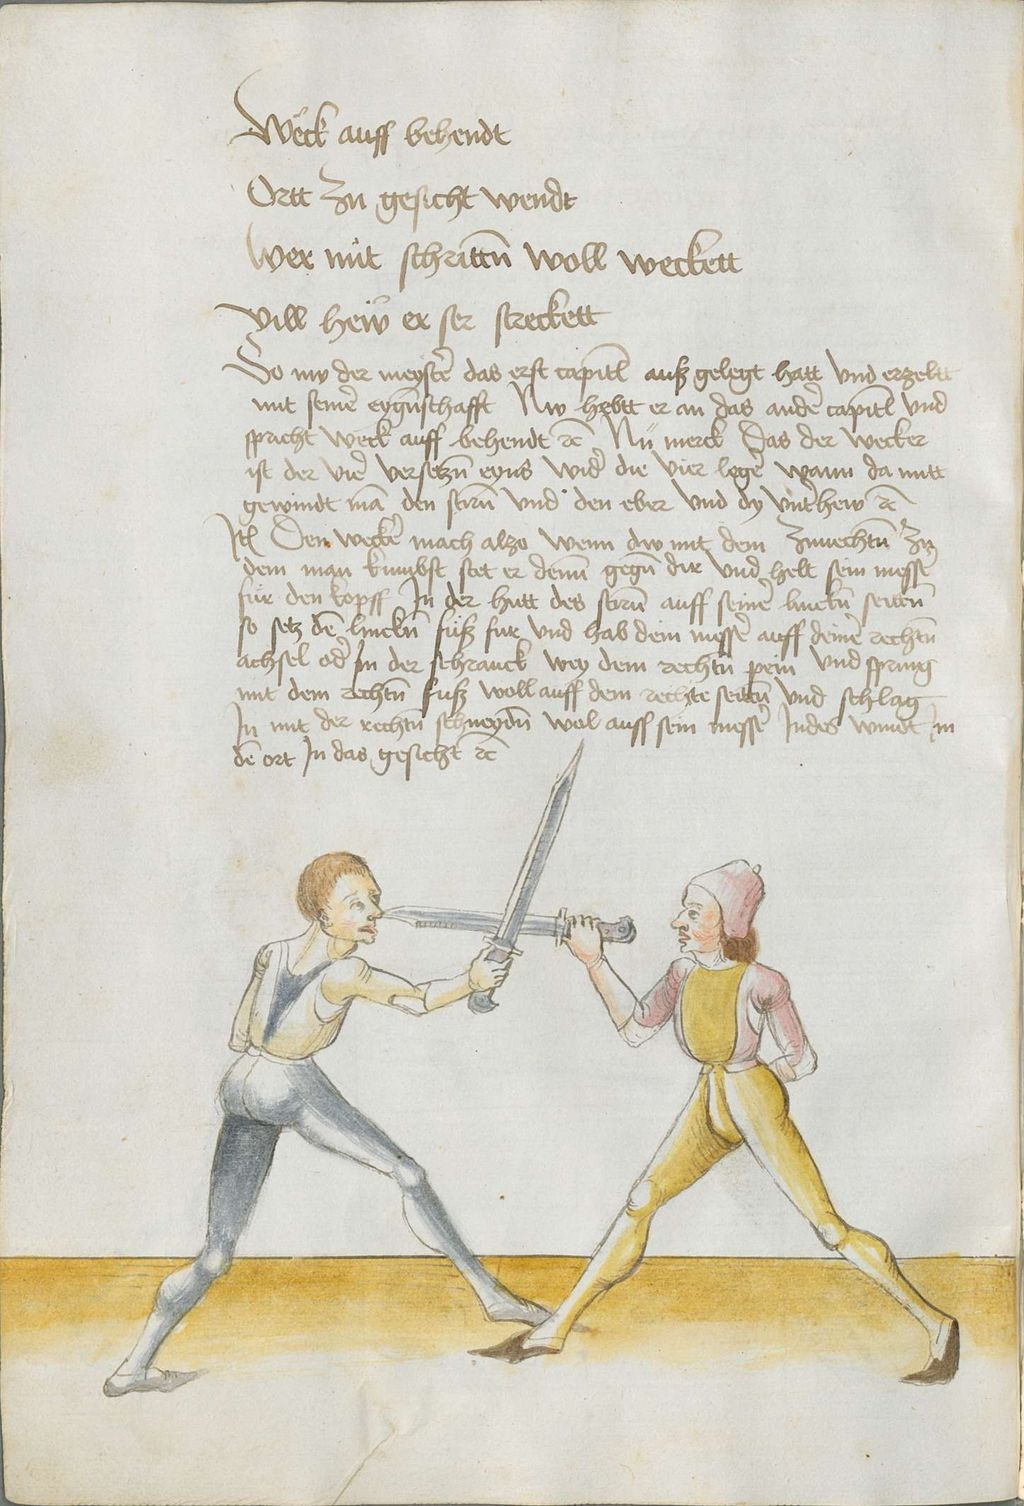 Weck auff behendt
Ortt zu gesicht wendt
wer mit schrittñ woll weckett
Vill hew er ser streckett
So nw der meyster̃ das erst capitl̃ auß gelegt hatt vnd erzeltt
mit seiner̃ eygñschafft Nw hebtt er an das ander̃ capitl̃ vnd
spricht weck auff behendt rc̃ Nu merck Das der wecker
ist der vier̃ versetzñ eyns wider̃ die vier leger̃ wann da mitt
gewindt mã den stirñ vnd den eber vnd dy vnthew rc̃
Itm̃ Den wecker̃ mach alzo wenn dw mit dem zuuechtñ zu
dem man kumbst stet er denn gegñ dir vnd helt sein messer̃
für den kopff In der hutt des stirñ auff seiner̃ linckñ seittñ
so setz dẽ linckñ fuß fur vnd hab dein messer̃ auff deiner̃ rechtñ
achsel oder̃ In der schranck wey dem rechtñ pein vnd spring
mit dem rechtñ fuß woll auff dem rechte seittñ vnd schlag
In mit der rechtñ schneydñ wol auff sein messer̃ Indes windt im
dẽ ort In das gesicht rc̃